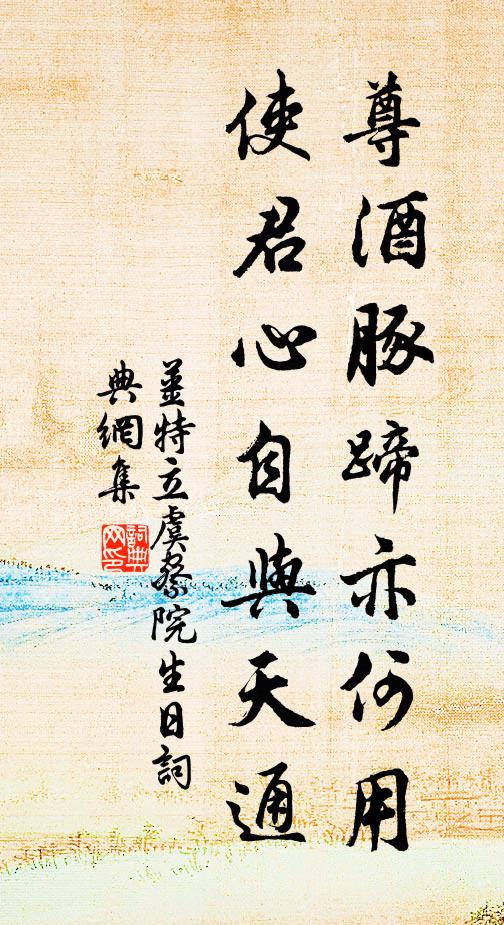 尊酒豚蹄亦何用
使君心自與天通
薑特立虞察院生日詞
典網集
詞典網印